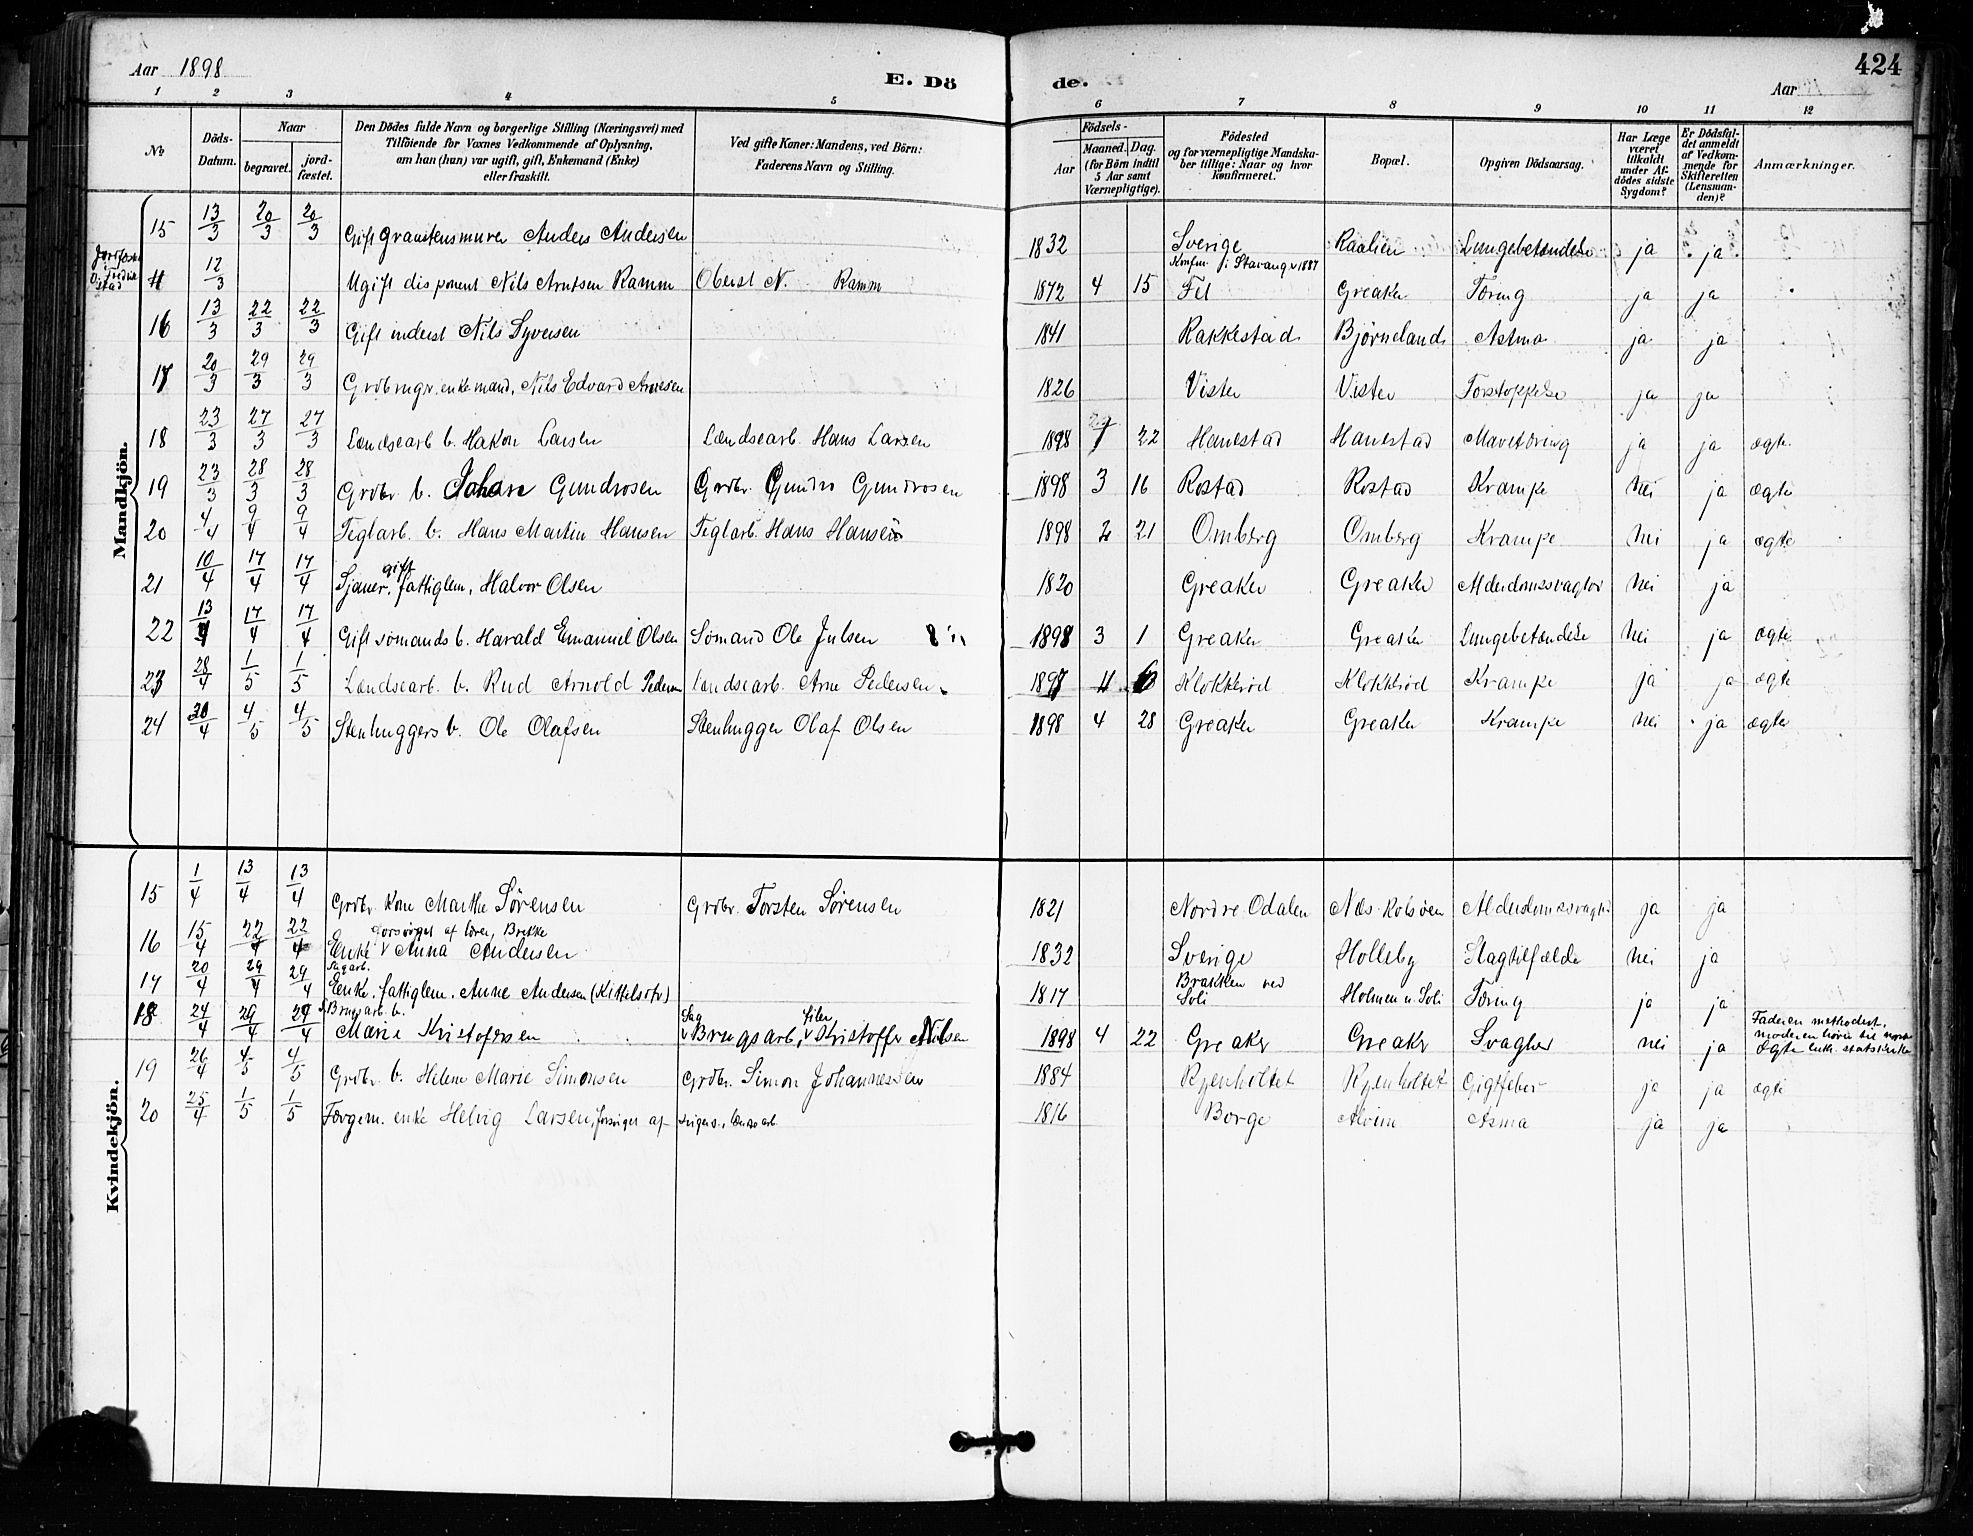 Aar 1898
E. Dö
de.
Aar
424
1 2 3 4 5 6 7 8 9 10 11 12
No
Döds-Datum.
Naar
begravet.
jord-fæstet.
Den Dödes fulde Navn og borgerlige Stilling (Næringsvei) med
Tilföiende for Voxnes Vedkommende af Oplysning,
om han (hun) var ugift, gift, Enkemand (Enke)
eller fraskilt.
Ved gifte Koner: Mandens, ved Börn:
Faderens Navn og Stilling.
Födsels-
Aar
Maaned. Dag.
(for Börn indtil
5 Aar samt
Værnepligtige).
Födested
og for værnepligtige Mandska-
ber tillige: Naar og hvor
konfirmeret.
Bopæl.
Opgiven Dödsaarsag.
Har Læge
været
tilkaldt
under Af-
dödes sidste
Sygdom?
Er Dödsfal-
det anmeldt
af Vedkom-
mende for
Skifteretten
(Lensman-
den)?
Anmærkninger.
Mandkjön.
15 13/3 20/3 20/3 Gift granitensmurer Anders Andersen 1832 Sverige Raalien Lungebetændelse ja ja
12/3 Ugift disponent Nils Arntsen Ramm Oberst N. Ramm 1872 4 15 Konfm. i Stavanger 1887 Greaker Tæring ja ja
16 13/3 22/3 22/3 Gift inderst Nils Syversen 1841 Rakkestad Bjørneland Astma ja ja
17 20/3 29/3 29/3 Grdbrugr. enkemand, Nils Edvard Arnesen 1826 Vister Vister Forstoppelse ja ja
18 23/3 27/3 27/3 Lændsearb. b. Hakon Larsen Lændsearb. Hans Larsen 1898 1 22 Hanestad Hanestad Mavetæring ja ja ægte
19 23/3 28/3 28/3 Grdbr. b. Johan Gundrosen Grdbr. Gundro Gundrosen 1898 3 16 Rostad Rostad Krampe nei ja ægte
20 4/4 9/4 9/4 Teglarb. b. Hans Martin Hansen Teglarb. Hans Hansen 1898 2 21 Omberg Omberg Krampe nei ja ægte
21 10/4 17/4 17/4 Sjauer, gift fattiglem, Halvor Olsen 1820 Greaker Greaker Alderdomssvaghed nei ja
22 13/4 17/4 17/4 Gift sömands b. Harald Emanuel Olsen Sömand Ole Julsen 1898 3 1 Greaker Greaker Lungebetændelse nei ja ægte
23 28/4 1/5 1/5 Lændsearb. b. Rud Arnold Pedersen Lændsearb. Arne Pedersen. 1897 11 6 Klokkrød Klokkrød Krampe ja ja ægte
24 30/4 4/5 4/5 Stenhuggers b. Ole Olafsen Stenhugger Olaf Olsen 1898 4 28 Greaker Greaker Krampe nei ja ægte
Kvindekjön.
15 1/4 13/4 13/4 Grdbr. Kone Marthe Sørensen Grdbr. Torsten Sørensen 1821 Nordre Odalen Næs Kolsöen Alderdomssvaghed ja ja
16 15/4 22/4 22/4 Enke Anna Andersen forsörget af lærer, Brekke 1832 Sverige Holleby Slagtilfælde nei ja
17 20/4 29/4 29/4 Sagarb. Enke, fattiglem. Anne Andersen (Kittelsrö) 1817 Brakken ved Soli Holmen u. Soli Tæring ja ja
18 24/4 29/4 29/4 Brugsarb. b. Marie Kristofersen Sag Brugsarb, filer Kristoffer Nilsen 1898 4 22 Greaker Greaker Svaghed nei ja Faderen methodist, moderen hörer til norske Ægte luth. statskirke
19 26/4 4/5 4/5 Grdbr. b. Helene Marie Simonsen Grdbr. Simon Johannessen 1884 Ryenholtet Ryenholtet Gigtfeber ja ja ægte
20 25/4 1/5 1/5 Færgem. enke Helvig Larsen, forsörget af lændsearb. 1816 Borge Alvim Asma ja ja